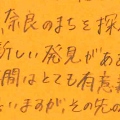 奈良のまちを探
新しい発見があ
間はとても有意義
いますが、その先の